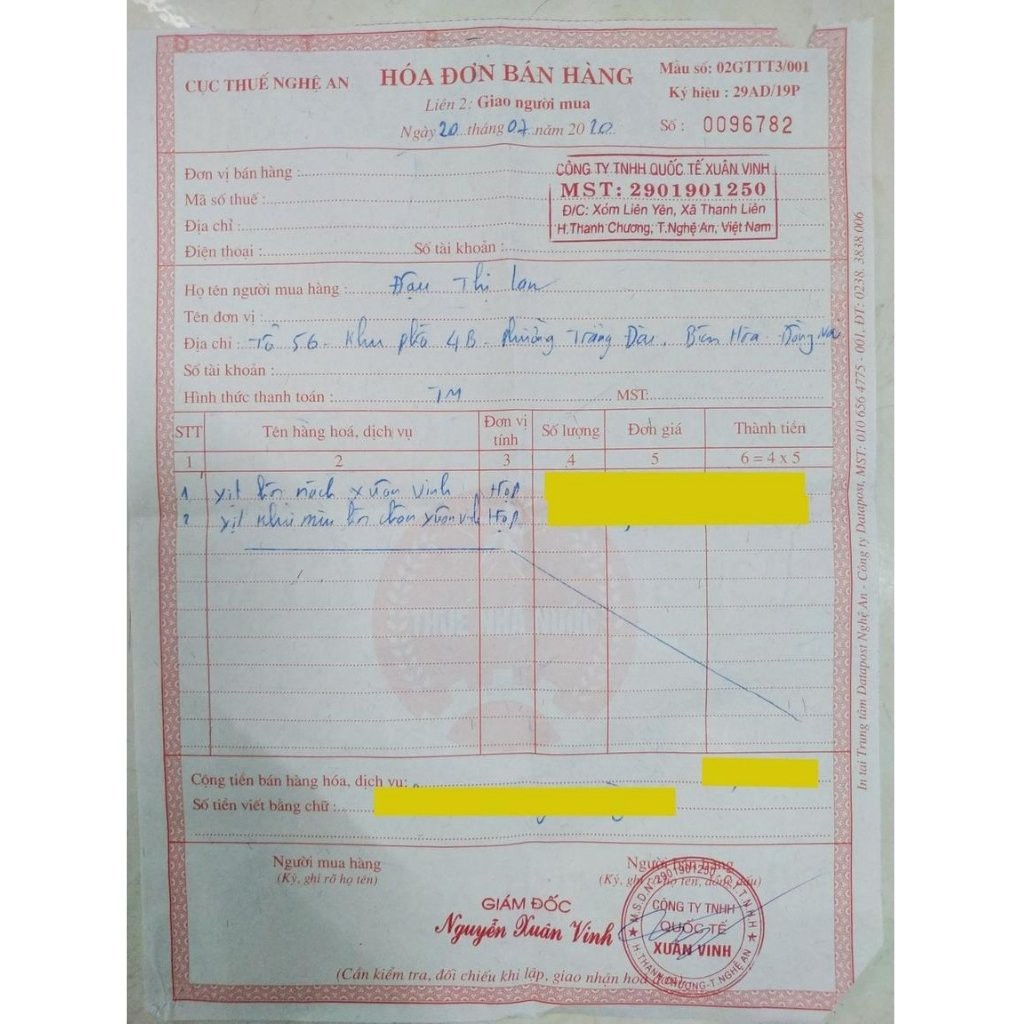 CỤC THUẾ NGHỆ AN
HÓA ĐƠN BÁN HÀNG
Liên 2: Giao người mua
Ngày 20 tháng 07 năm 2020
Mẫu số: 02GTTT3/001
Ký hiệu : 29AD/19P
Số : 0096782
Đơn vị bán hàng :
Mã số thuế :
Địa chỉ :
Điện thoại : Số tài khoản :
CÔNG TY TNHH QUỐC TẾ XUÂN VINH
MST: 2901901250
Đ/C: Xóm Liên Yên, Xã Thanh Liên
H.Thanh Chương, T.Nghệ An, Việt Nam
Họ tên người mua hàng : Đậu Thị Lan
Tên đơn vị :
Địa chỉ : Tổ 56 - Khu phố 4B - Phường Trảng Dài, Biên Hòa - Đồng Nai
Số tài khoản :
Hình thức thanh toán : TM MST:
STT Tên hàng hoá, dịch vụ Đơn vị tính Số lượng Đơn giá Thành tiền
1 2 3 4 5 6 = 4 x 5
1 Xịt hôi nách Xuân Vinh Hộp
2 Xịt khử mùi hôi chân Xuân Vinh Hộp
Cộng tiền bán hàng hóa, dịch vụ:
Số tiền viết bằng chữ :
Người mua hàng
(Ký, ghi rõ họ tên)
Người bán hàng
(Ký, ghi rõ họ tên, đóng dấu)
GIÁM ĐỐC
Nguyễn Xuân Vinh
M.S.D.N: 2901901250 - C.T.T.N.H.H
CÔNG TY TNHH
QUỐC TẾ
XUÂN VINH
H.THANH CHƯƠNG-T.NGHỆ AN
(Cần kiểm tra, đối chiếu khi lập, giao nhận hóa đơn)
In tại Trung tâm Datapost Nghệ An - Công ty Datapost, MST: 010 656 4775 - 001, ĐT: 0238. 3838 006